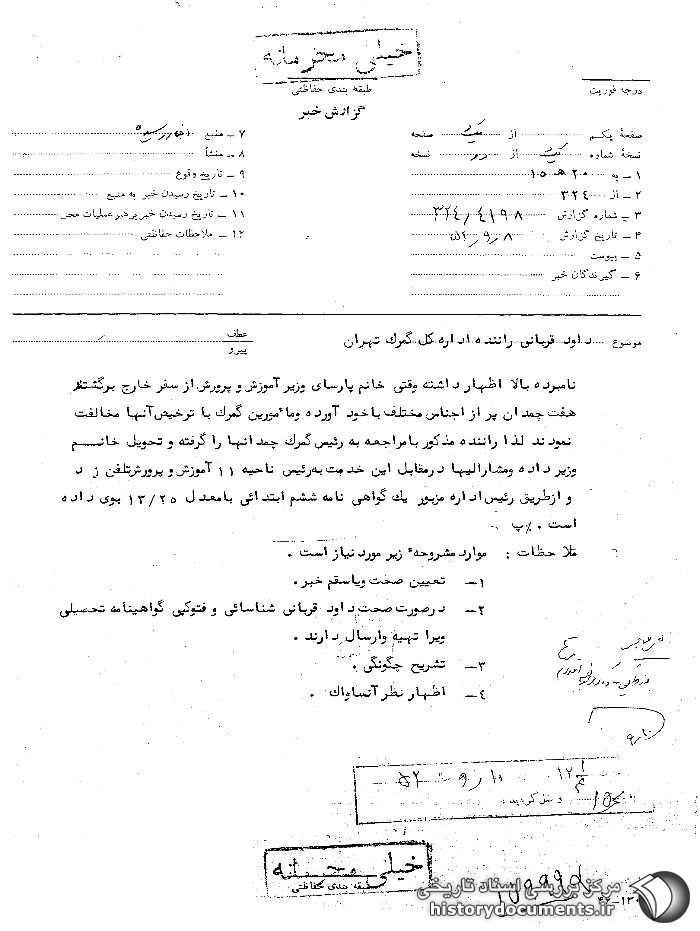 خیلی محرمانه
طبقه بندی حفاظتی
گزارش خبر
درجه فوریت
صفحهٔ یکم از یک صفحه
نسخهٔ شماره یک از نسخه
۱ ـ به ۲۰ هـ ۱۵
۲ ـ از ۳۲۴
۳ ـ شماره گزارش ۳۲۴/۴۱۹۸
۴ ـ تاریخ گزارش ۵۲/۹/۸
۵ ـ پیوست
۶ ـ گیرندگان خبر
۷ ـ منبع
۸ ـ منشأ
۹ ـ تاریخ وقوع
۱۰ ـ تاریخ رسیدن خبر به منبع
۱۱ ـ تاریخ رسیدن خبر برهبر عملیات محل
۱۲ ـ ملاحظات حفاظتی
موضوع داود قربانی راننده اداره کل گمرک تهران
عطف
پیرو
نامبرده بالا اظهار داشته وقتی خانم پارسای وزیر آموزش و پرورش از سفر خارج برگشتند
هفت چمدان پر از اجناس مختلف باخود آورده ومأمورین گمرک با ترخیص آنها مخالفت
نمودند لذا راننده مذکور بامراجعه به رئیس گمرک چمدانها را گرفته و تحویل خانم
وزیر داده ومشارالیها درمقابل این خدمت به رئیس ناحیه ۱۱ آموزش و پرورش تلفن زد
و ازطریق رئیس اداره مزبور یک گواهی نامه ششم ابتدائی بامعدل ۱۳/۲۵ بوی داده
است . %پ
ملاحظات : موارد مشروحه زیر مورد نیاز است .
۱ـ تعیین صحت ویاسقم خبر .
۲ـ درصورت صحت داود قربانی شناسائی و فتوکپی گواهینامه تحصیلی
ویرا تهیه وارسال دارند .
۳ـ تشریح چگونگی .
۴ـ اظهار نظر آنساواک .
خیلی محرمانه
طبقه بندی حفاظتی
مرکز بررسی اسناد تاریخی
historydocuments.ir